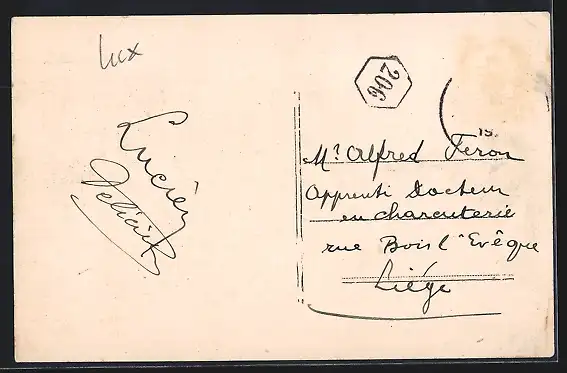 Lux
206
19
Lucien
Mr. Alfred Féron
Apprenti Docteur
en charcuterie
rue Bois l'Evêque
Liége